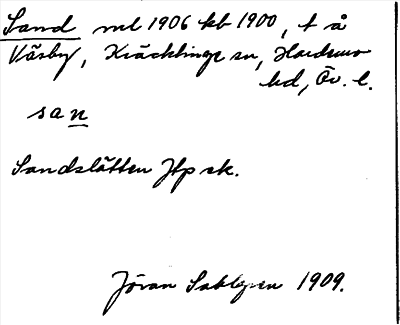 Sand ml 1906 kb 1900, t å
Väsby, Kräcklinge sn, Hardemo
hd, Ör. l.
san
Sandslätten Jfp sk.
Jöran Sahlgren 1909.